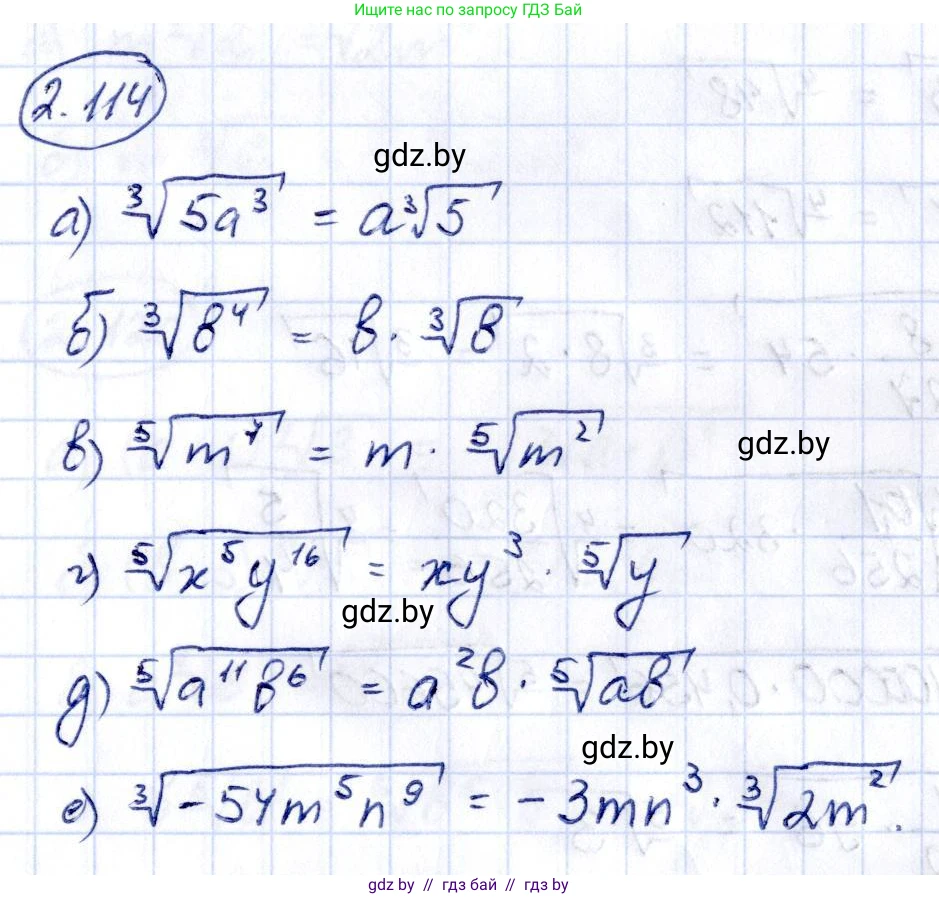 Ищите нас по запросу ГДЗ Бай
2.114
gdz.by
а) ∛(5a³) = a∛5
б) ∛(b⁴) = b · ∛b
в) ⁵√(m⁷) = m · ⁵√(m²)
gdz.by
г) ⁵√(x⁵y¹⁶) = xy³ · ⁵√y
gdz.by
д) ⁵√(a¹¹b⁶) = a²b · ⁵√(ab)
gdz.by
е) ∛(-54m⁵n⁹) = -3mn³ · ∛(2m²).
gdz by // гдз бай // gdz by